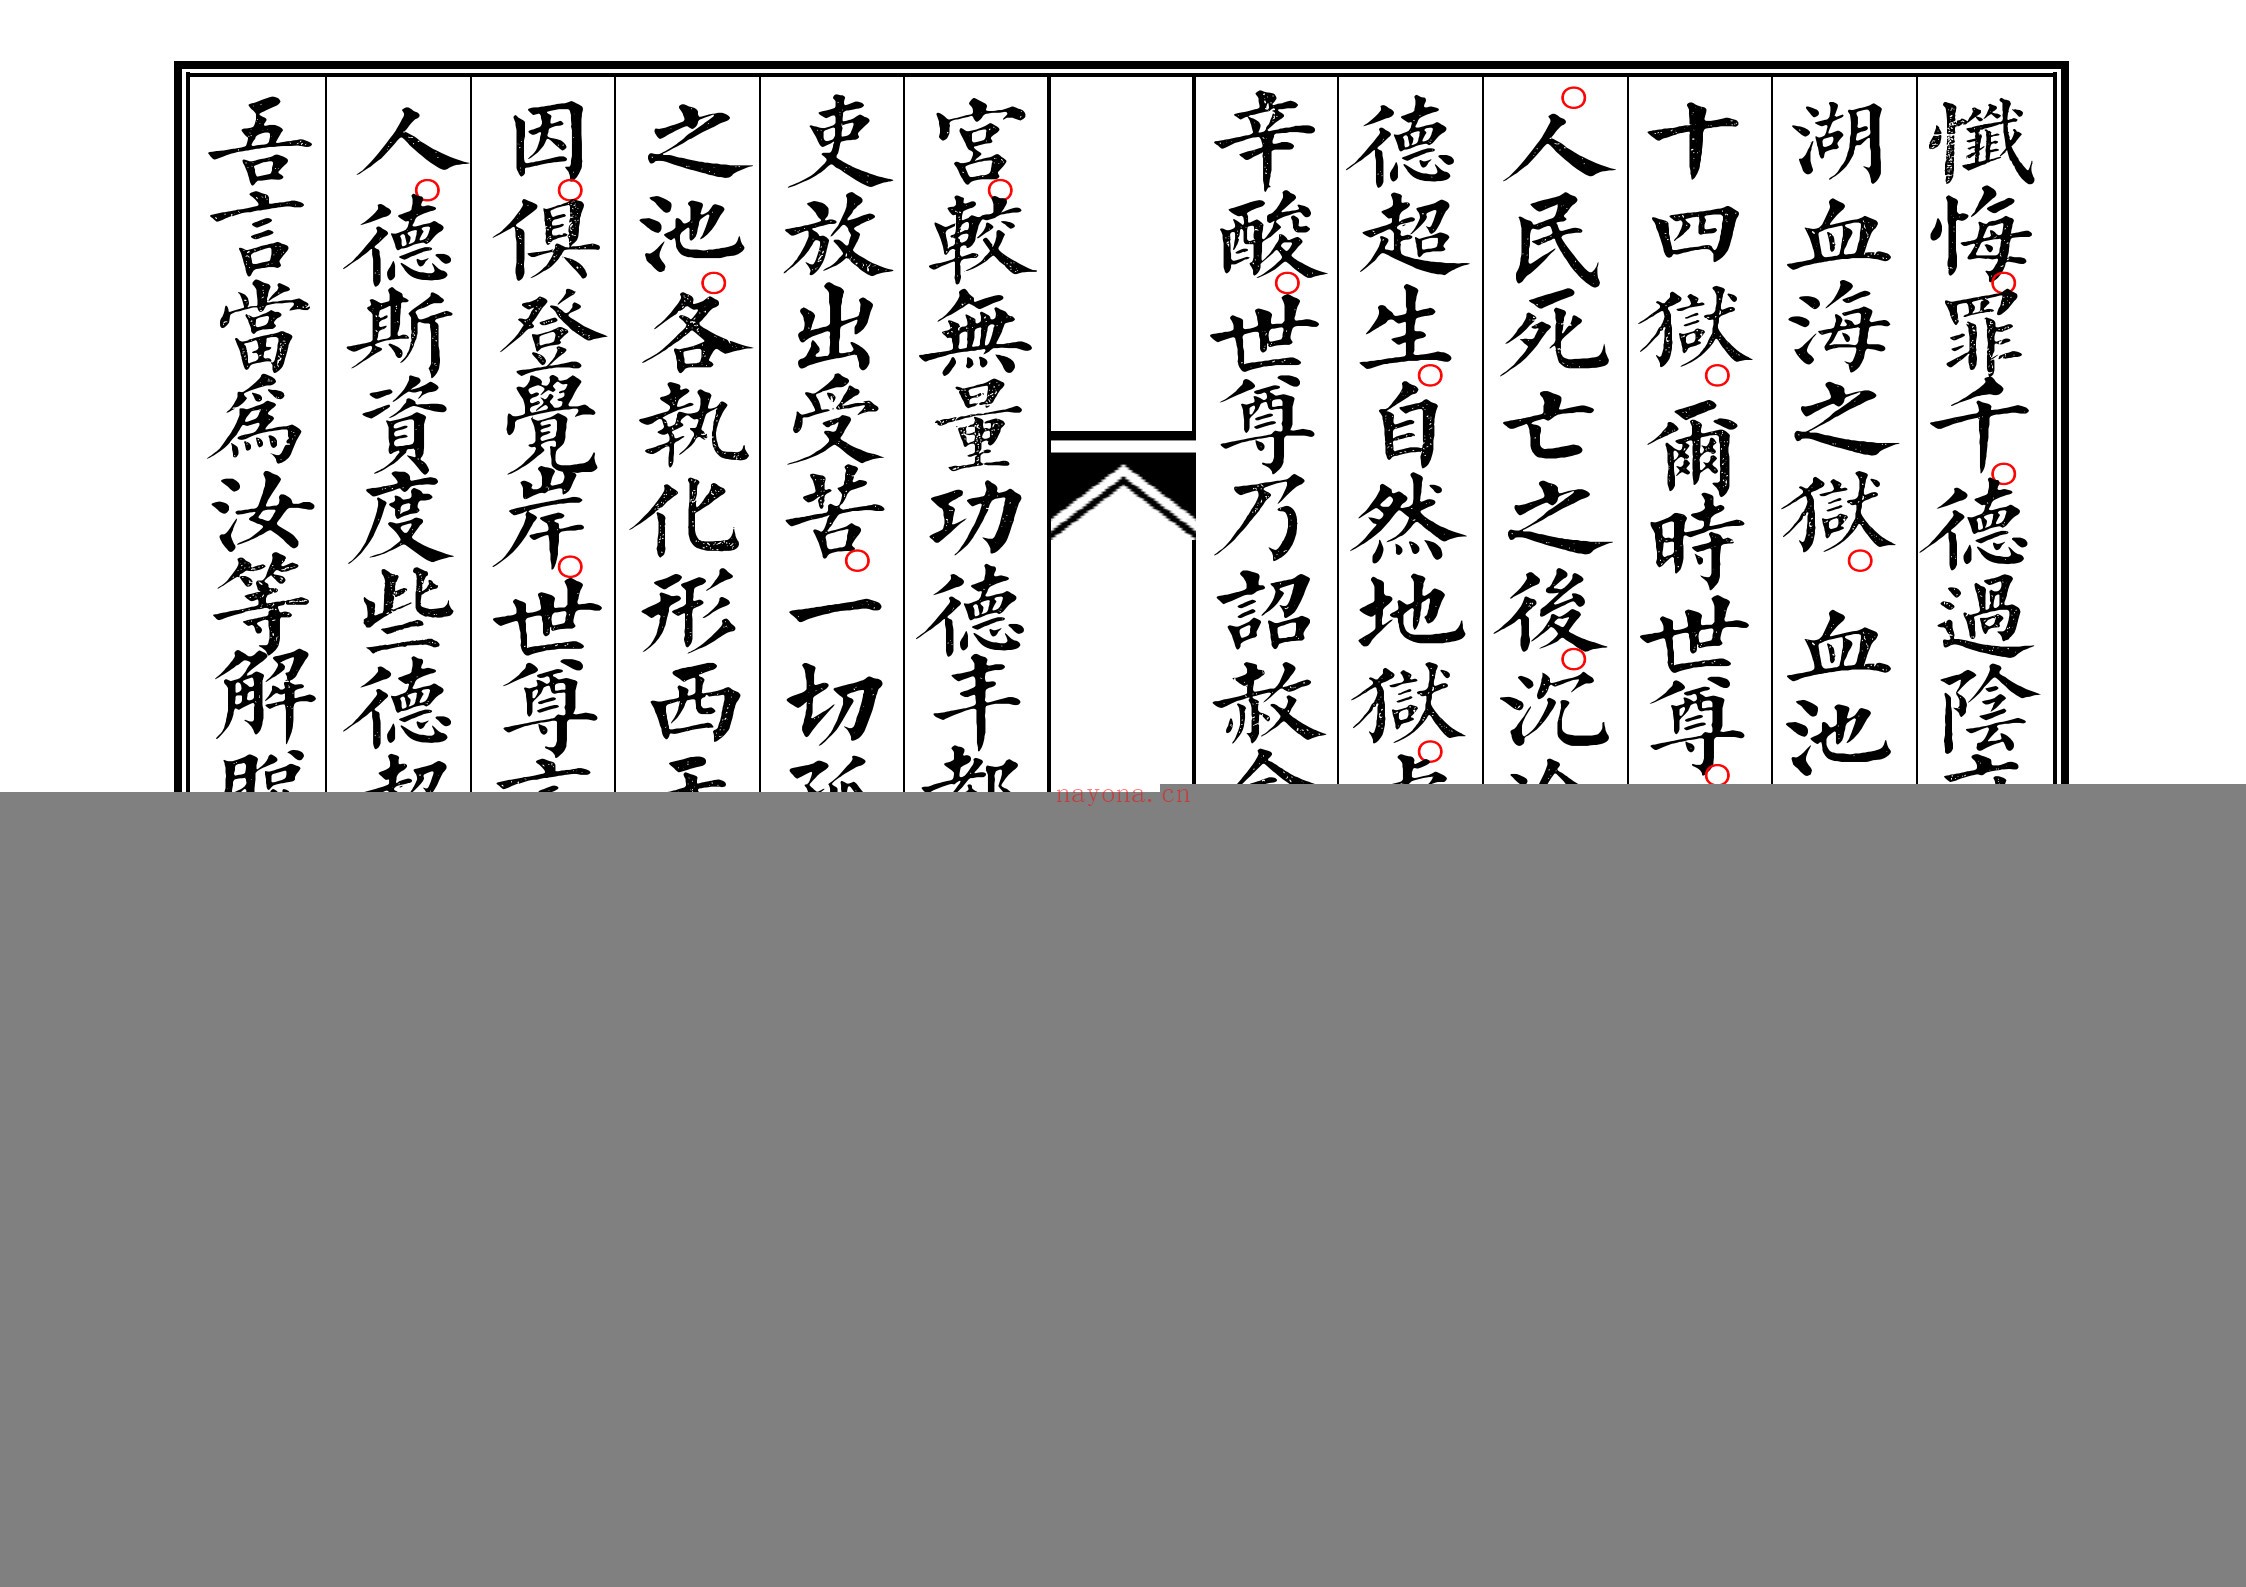 懺悔。罪千。德過陰
湖血海之獄。血池
十四獄。爾時世尊。
。人民死亡之後。沉
德超生。自然地獄。
辛酸。世尊乃詔赦
宮。較無量功德丰都
吏放出受苦。一切
之池。各執化形西
因。俱登覺岸。世尊
人。德斯資度些德超
吾言當為汝等解脫
nayona.cn